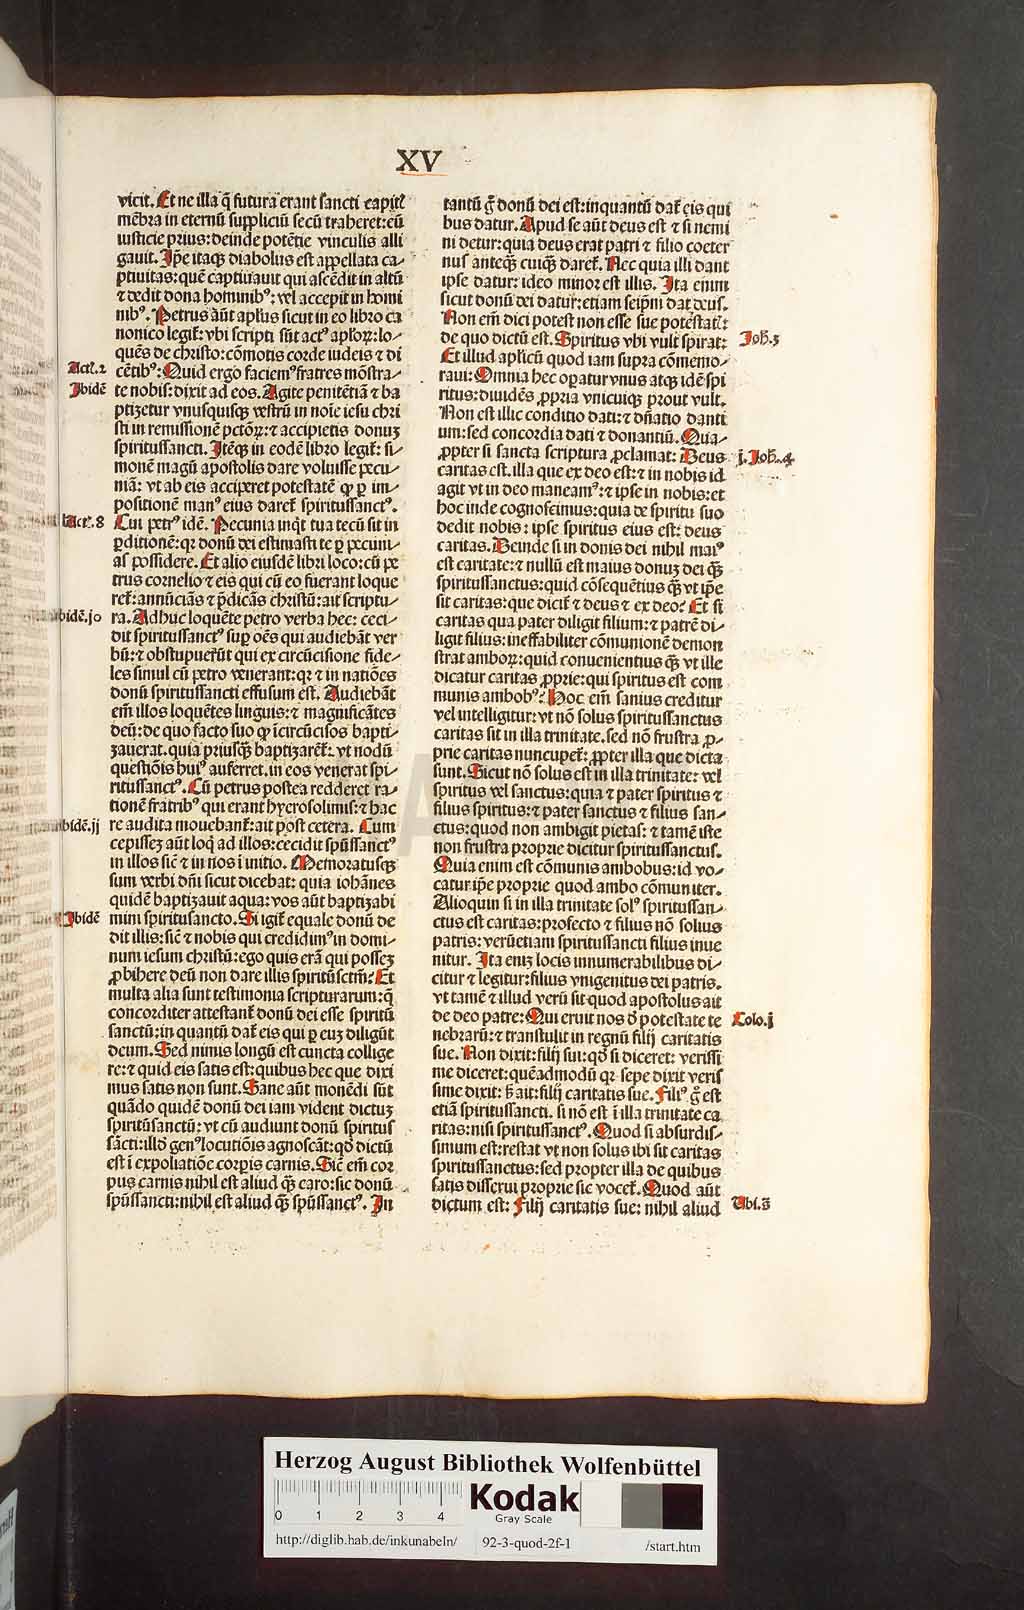 XV
vicit. Et ne illa q̄ futura erant sancti capitꝭ
mēbra in eternū suppliciū secū traberet: eū
iusticie prius: deinde potētie vinculis alli
gauit. Ip̄e itaqꝫ diabolus est appellata ca⸗
ptiuitas: quē captiuauit qui ascēdit in altū
⁊ dedit dona hominibꝰ: vel accepit in homi
nibꝰ. Petrus aūt apl̓us sicut in eo libro ca
nonico legit̄: vbi scripti sūt actꝰ apl̓oꝝ: lo⸗
quēs de christo: cōmotis corde iudeis ⁊ di
Act̄. 2
cētibꝰ: Quid ergo faciemꝰ fratres mōstra⸗
Jbidē
te nobis: dixit ad eos. Agite penitētiā ⁊ ba
ptizetur vnusquisqꝫ vestrū in noīe iesu chri
sti in remissionē pctōꝝ: ⁊ accipietis donuꝫ
spiritussancti. Itēqꝫ in eodē libro legit̄: si⸗
monē magū apostolis dare voluisse pecu⸗
niā: vt ab eis acciperet potestatē ꝙ ꝑ im⸗
positionē manꝰ eius daret̄ spiritussanctꝰ.
Act̄. 8
Cui petrꝰ idē. Pecunia inqt̄ tua tecū sit in
ꝑditionē: qꝛ donū dei estimasti te ꝑ pecuni⸗
as possidere. Et alio eiusdē libri loco: cū pe
trus cornelio ⁊ eis qui cū eo fuerant loque
ret̄: annūciās ⁊ p̄dicās christū: ait scriptu⸗
ibidē. jo
ra. Adhuc loquēte petro verba hec: ceci⸗
dit spiritussanctꝰ suꝑ oēs qui audiebāt ver
bū: ⁊ obstupuerūt qui ex circūcisione fide⸗
les simul cū petro venerant: qꝛ ⁊ in natiōes
donū spiritussancti effusum est. Audiebāt
em̄ illos loquētes linguis: ⁊ magnificātes
deū: de quo facto suo ꝙ īcircūcisos bapti⸗
zauerat. quia priusqꝫ baptizaret̄: vt nodū
questiōis huiꝰ auferret. in eos venerat spi⸗
ritussanctꝰ. Cū petrus postea redderet ra⸗
tionē fratribꝰ qui erant hyerosolimis: ⁊ hac
ibidē. jj
re audita mouebant̄: ait post cetera. Cum
cepisseꝫ aūt loqͥ ad illos: cecidit sp̄ussanctꝰ
in illos sic̄ ⁊ in nos ī initio. Memoratusqꝫ
sum verbi dn̄i sicut dicebat: quia iohānes
quidē baptizauit aqua: vos aūt baptizabi
Jbidē
mini spiritusancto. Si igit̄ equale donū de
dit illis: sic̄ ⁊ nobis qui credidimꝰ in domi⸗
num iesum christū: ego quis erā qui posseꝫ
ꝓhibere deū non dare illis spiritūsctm̄? Et
multa alia sunt testimonia scripturarum: q̄
concorditer attestant̄ donū dei esse spiritū
sanctū: in quantū dat̄ eis qui ꝑ euꝫ diligūt
deum. Sed nimis longū est cuncta collige
re: ⁊ quid eis satis est: quibus hec que dixi
mus satis non sunt. Sane aūt monēdi sūt
quādo quidē donū dei iam vident dictuꝫ
spiritūsanctū: vt cū audiunt donū spiritus
sācti: illd̓ genꝰ locutiōis agnoscāt: qd̓ dictū
est ī expoliatiōe corꝑis carnis. Sic̄ em̄ cor
pus carnis nihil est aliud qꝫ caro: sic donū
sp̄ussancti: nihil est aliud qꝫ sp̄ussanctꝰ. In
tantū g̊ donū dei est: inquantū dat̄ eis qui
bus datur. Apud se aūt deus est ⁊ si nemi
ni detur: quia deus erat patri ⁊ filio coeter
nus anteqꝫ cuiqꝫ daret̄. Nec quia illi dant
ipse datur: ideo minor est illis. Ita enim
sicut donū dei datur: etiam seip̄m dat deus.
Non em̄ dici potest non esse sue potestatꝭ:
de quo dictū est. Spiritus vbi vult spirat:
Joh̄. 3
Et illud apl̓icū quod iam supra cōmemo⸗
raui: Omnia hec oꝑatur vnus atqꝫ idē spi
ritus: diuidēs ꝓpria vnicuiqꝫ prout vult.
Non est illic conditio dati: ⁊ dn̄atio danti
um: sed concordia dati ⁊ donantiū. Qua⸗
ꝓpter si sancta scriptura ꝓclamat: Deus
j. Joh̄. 4
caritas est. illa que ex deo est: ⁊ in nobis id
agit vt in deo maneamꝰ: ⁊ ipse in nobis: et
hoc inde cognoscimus: quia de spiritu suo
dedit nobis: ipse spiritus eius est: deus
caritas. Deinde si in donis dei nihil maiꝰ
est caritate: ⁊ nullū est maius donuꝫ dei qꝫ
spiritussanctus: quid cōsequētius qꝫ vt ip̄e
sit caritas: que dicit̄ ⁊ deus ⁊ ex deo? Et si
caritas qua pater diligit filium: ⁊ patrē di⸗
ligit filius: ineffabiliter cōmunionē demon
strat amboꝝ: quid conuenientius qꝫ vt ille
dicatur caritas ꝓprie: qui spiritus est com
munis ambobꝰ? Hoc em̄ sanius creditur
vel intelligitur: vt nō solus spiritussanctus
caritas sit in illa trinitate. sed nō frustra ꝓ⸗
prie caritas nuncupet̄: ꝓpter illa que dicta
sunt. Sicut nō solus est in illa trinitate: vel
spiritus vel sanctus: quia ⁊ pater spiritus ⁊
filius spiritus: ⁊ pater sanctus ⁊ filius san⸗
ctus: quod non ambigit pietas: ⁊ tamē iste
non frustra proprie dicitur spiritussanctus.
Quia enim est cōmunis ambobus: id vo⸗
catur ip̄e proprie quod ambo cōmuniter.
Alioquin si in illa trinitate solꝰ spiritussan⸗
ctus est caritas: profecto ⁊ filius nō solius
patris: verūetiam spiritussancti filius inue
nitur. Ita enꝫ locis innumerabilibus di⸗
citur ⁊ legitur: filius vnigenitus dei patris.
vt tamē ⁊ illud verū sit quod apostolus ait
de deo patre: Qui eruit nos d̓ potestate te
Colo. j
nebrarū: ⁊ transtulit in regnū filij caritatis
sue. Non dixit: filij sui: qd̓ si diceret: verissi
me diceret: quēadmodū qꝛ sepe dixit veris
sime dixit: sꝫ ait: filij caritatis sue. Filiꝰ g̊ est
etiā spiritussancti. si nō est ī illa trinitate ca
ritas: nisi spiritussanctꝰ. Quod si absurdis⸗
simum est: restat vt non solus ibi sit caritas
spiritussanctus: sed propter illa de quibus
satis disserui proprie sic vocet̄. Quod aūt
dictum est: Filij caritatis sue: nihil aliud
Vbi. s̄
Herzog August Bibliothek Wolfenbüttel
0 1 2 3 4
Kodak
Gray Scale
http://diglib.hab.de/inkunabeln/ 92-3-quod-2f-1 /start.htm